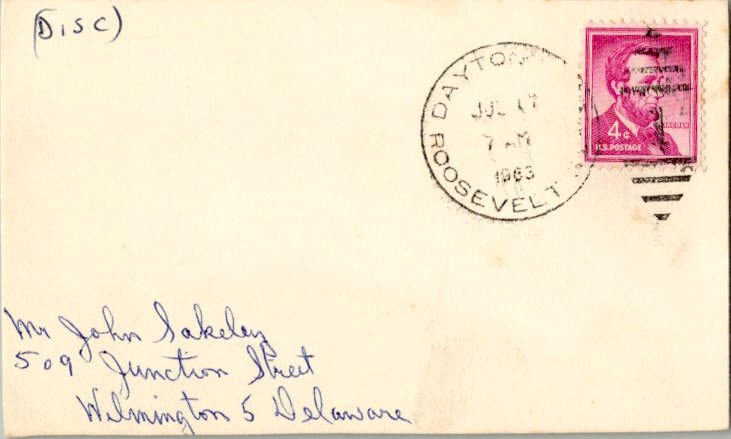 (DISC)
DAYTON
JUL 17
7 AM
1963
ROOSEVELT
LINCOLN
4¢
U.S. POSTAGE
Mr John Sakeley
509 Junction Street
Wilmington 5 Delaware